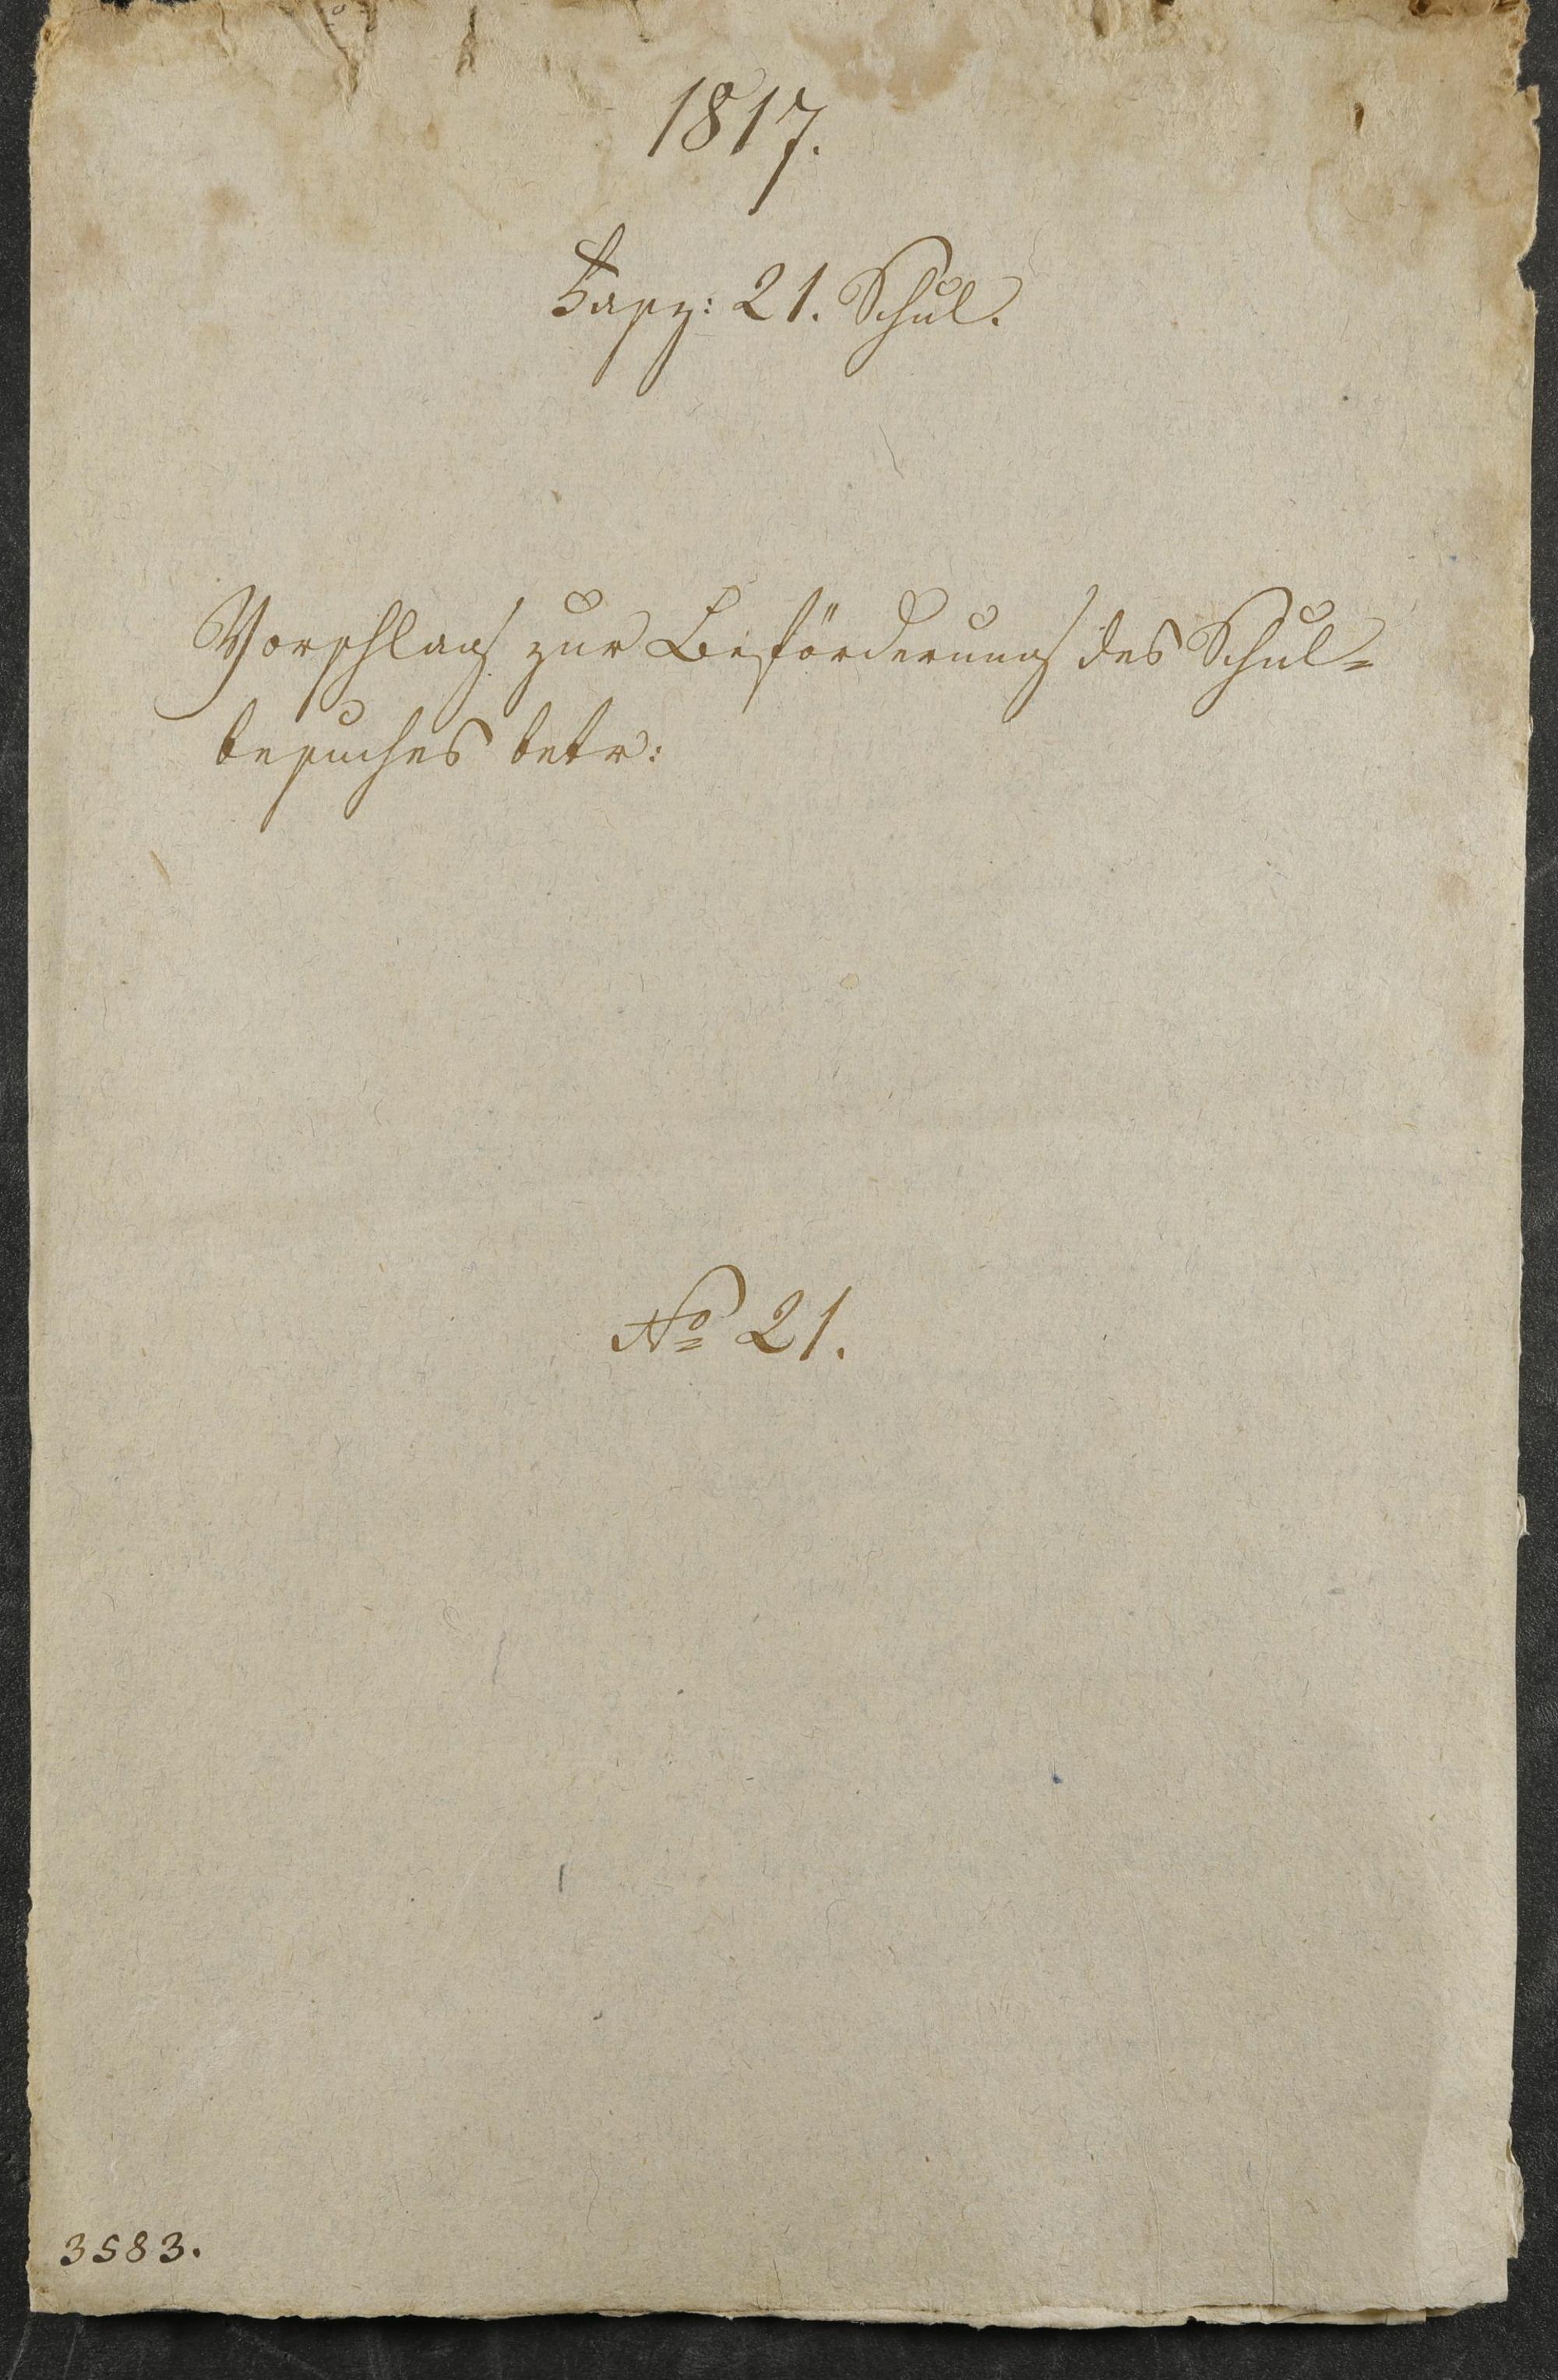 1817.
Fasz: 21. Schul.
Vorschlag zur Beförderung des Schul=
besuches betr:
No 21.
3583.